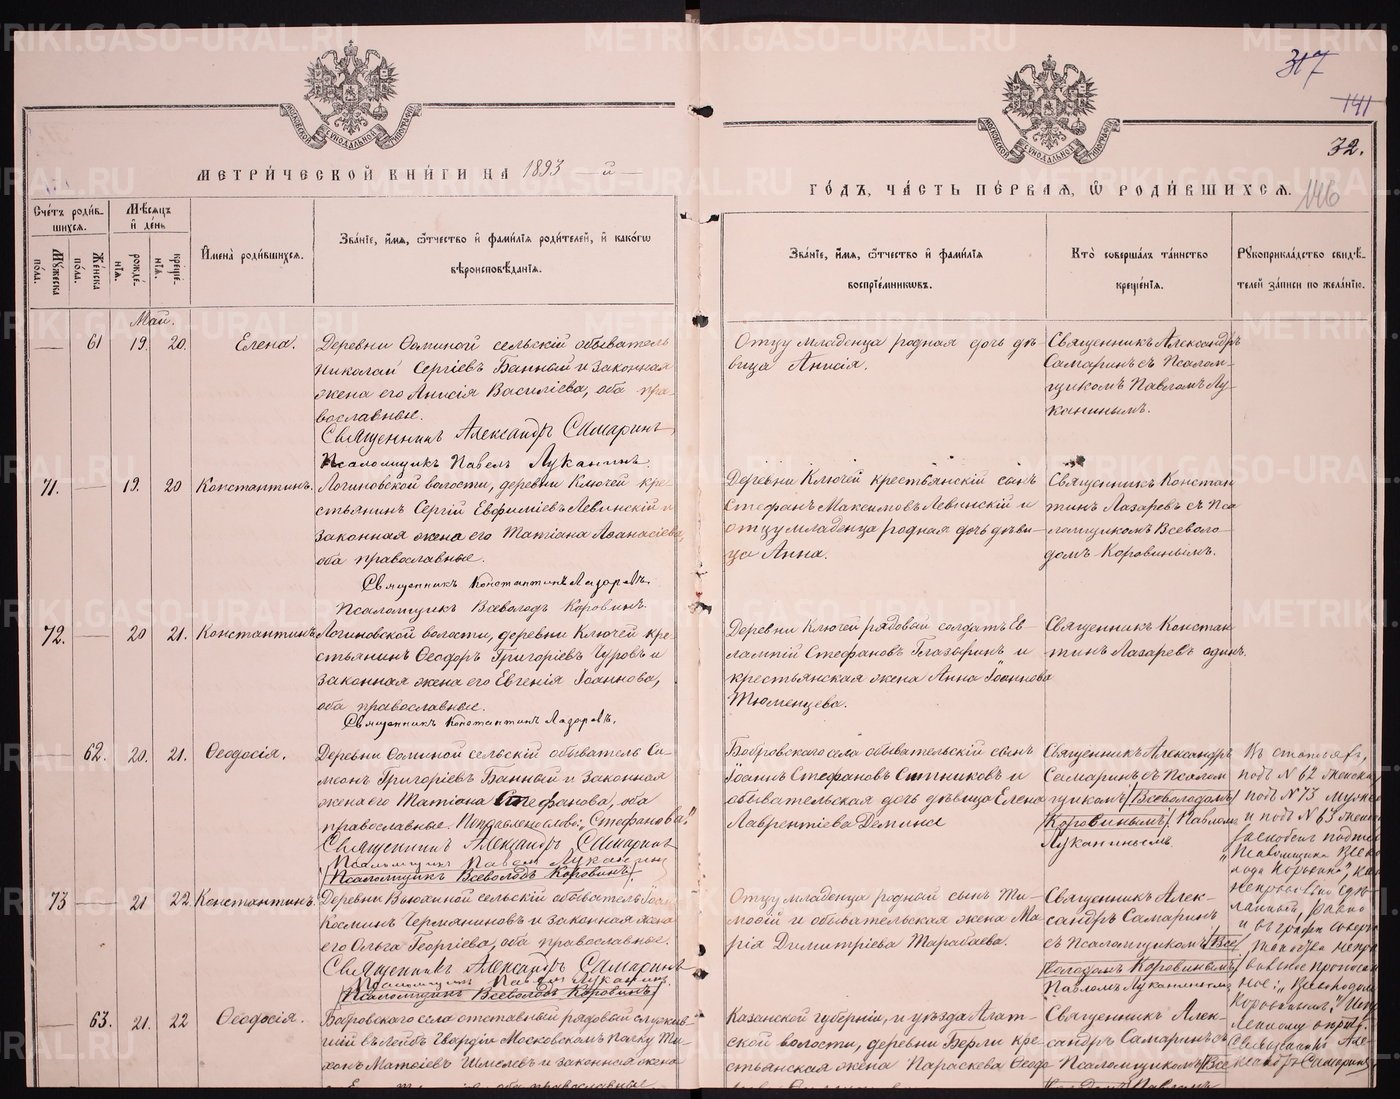 317
141
32.
146
МЕТРИ́ЧЕСКОЙ КНИ́ГИ НА 1893 — й —
ГО́ДЪ, ЧА́СТЬ ПЕ́РВАЯ, Ѡ РОДИ́ВШИХСЯ.
МОСКОВСКОЙ СѴНОДАЛЬНОЙ ТИПОГРАФІИ
МОСКОВСКОЙ СѴНОДАЛЬНОЙ ТИПОГРАФІИ
Сче́тъ роди́в-
шихся.
Мѣ́сяцъ
и҆ день
Мꙋ́жеска
пола.
Же́нска
пола.
рожде́-
нїѧ.
креще́-
нїѧ.
И҆мена̀ роди́вшихся.
Зва́нїе, и҆мѧ, ѻ҆́тчество и҆ фами́лїѧ роди́телей, и҆ како́гѡ
вѣроисповѣ́данїѧ.
Зва́нїе, и҆мѧ, ѻ҆́тчество и҆ фами́лїѧ
воспрїе́мникѡвъ.
Кто̀ соверша́лъ та́инство
креще́нїѧ.
Рꙋкоприкла́дство свидѣ́-
телей за́писи по жела́нїю.
Май.
— 61 19. 20. Елена.
Деревни Ѳоминой сельскій обыватель
Николай Сергіевъ Банный и законная
жена его Анисія Василіева, оба пра-
вославные.
Священникъ Александръ Самаринъ
Псаломщикъ Павелъ Луканинъ.
Отцу младенца родная дочь дѣ-
вица Анисія.
Священникъ Александръ
Самаринъ съ Псалом-
щикомъ Павломъ Лу-
канинымъ.
71. — 19. 20 Константинъ.
Логиновской волости, деревни Ключей кре-
стьянинъ Сергій Евфиміевъ Левинскій и
законная жена его Татіана Аѳанасіева,
оба православные.
Священникъ Константинъ Лазаревъ.
Псаломщикъ Всеволодъ Коровинъ.
Деревни Ключей крестьянскій сынъ
Стефанъ Максимовъ Левинскій и
отцу младенца родная дочь дѣви-
ца Анна.
Священникъ Констан
тинъ Лазаревъ съ Пса
ломщикомъ Всеволо-
домъ Коровинымъ.
72. — 20 21. Константинъ
Логиновской волости, деревни Ключей кре-
стьянинъ Ѳеодоръ Григоріевъ Чуровъ и
законная жена его Евгенія Іоаннова,
оба православные.
Священникъ Константинъ Лазаревъ.
Деревни Ключей рядовой солдатъ Ев-
лампій Стефановъ Глазыринъ и
крестьянская жена Анна Іоаннова
Тюменцева.
Священникъ Констан
тинъ Лазаревъ одинъ.
— 62. 20. 21. Ѳеодосія.
Деревни Ѳоминой сельскій обыватель Си-
меонъ Григоріевъ Банный и законная
жена его Татіана Стефанова, оба
православные. Поправлено слово: „Стефанова."
Священникъ Александръ Самаринъ
Псаломщикъ Павелъ Луканинъ
Псаломщикъ Всеволодъ Коровинъ.
Бобровского села обывательскій сынъ
Іоаннъ Стефановъ Ситниковъ и
обывательская дочь дѣвица Елена
Лаврентіева Демина
Священникъ Александръ
Самаринъ съ Псалом
щикомъ Всеволодомъ
Коровинымъ Павломъ
Луканинымъ.
Въ статьяхъ,
подъ № 62 женска
подъ № 73 мужск
и подъ № 63 женск
„Псаломщика Всево
лода Коровина",
73 — 21 22 Константинъ.
Деревни Вьюхиной сельскій обыватель Іоан
Косминъ Сермяниновъ и законная жена
его Ольга Георгіева, оба православные.
Священникъ Александръ Самаринъ
Псаломщикъ Павелъ Луканинъ.
Псаломщикъ Всеволодъ Коровинъ
Отцу младенца родной сынъ Ти-
моѳей и обывательская жена Ма-
рія Димитріева Тарабаева.
Священникъ Алек-
сандръ Самаринъ
съ псаломщикомъ Все
володомъ Коровинымъ
Павломъ Луканинымъ
— 63. 21. 22 Ѳеодосія.
Бобровского села отставный рядовой служив-
шій въ Лейбъ Гвардіи Московскомъ Полку Ти-
хонъ Матѳіевъ Шмелевъ и законная жена
оба православные
Казанской губерніи, и уѣзда Алат-
ской волости, деревни Берли кре-
стьянская жена Параскева Ѳеод
Священникъ Алек-
сандръ Самаринъ съ
Псаломщикомъ Все
Священникъ Але-
ксандръ Самаринъ
METRIKI.GASO-URAL.RU